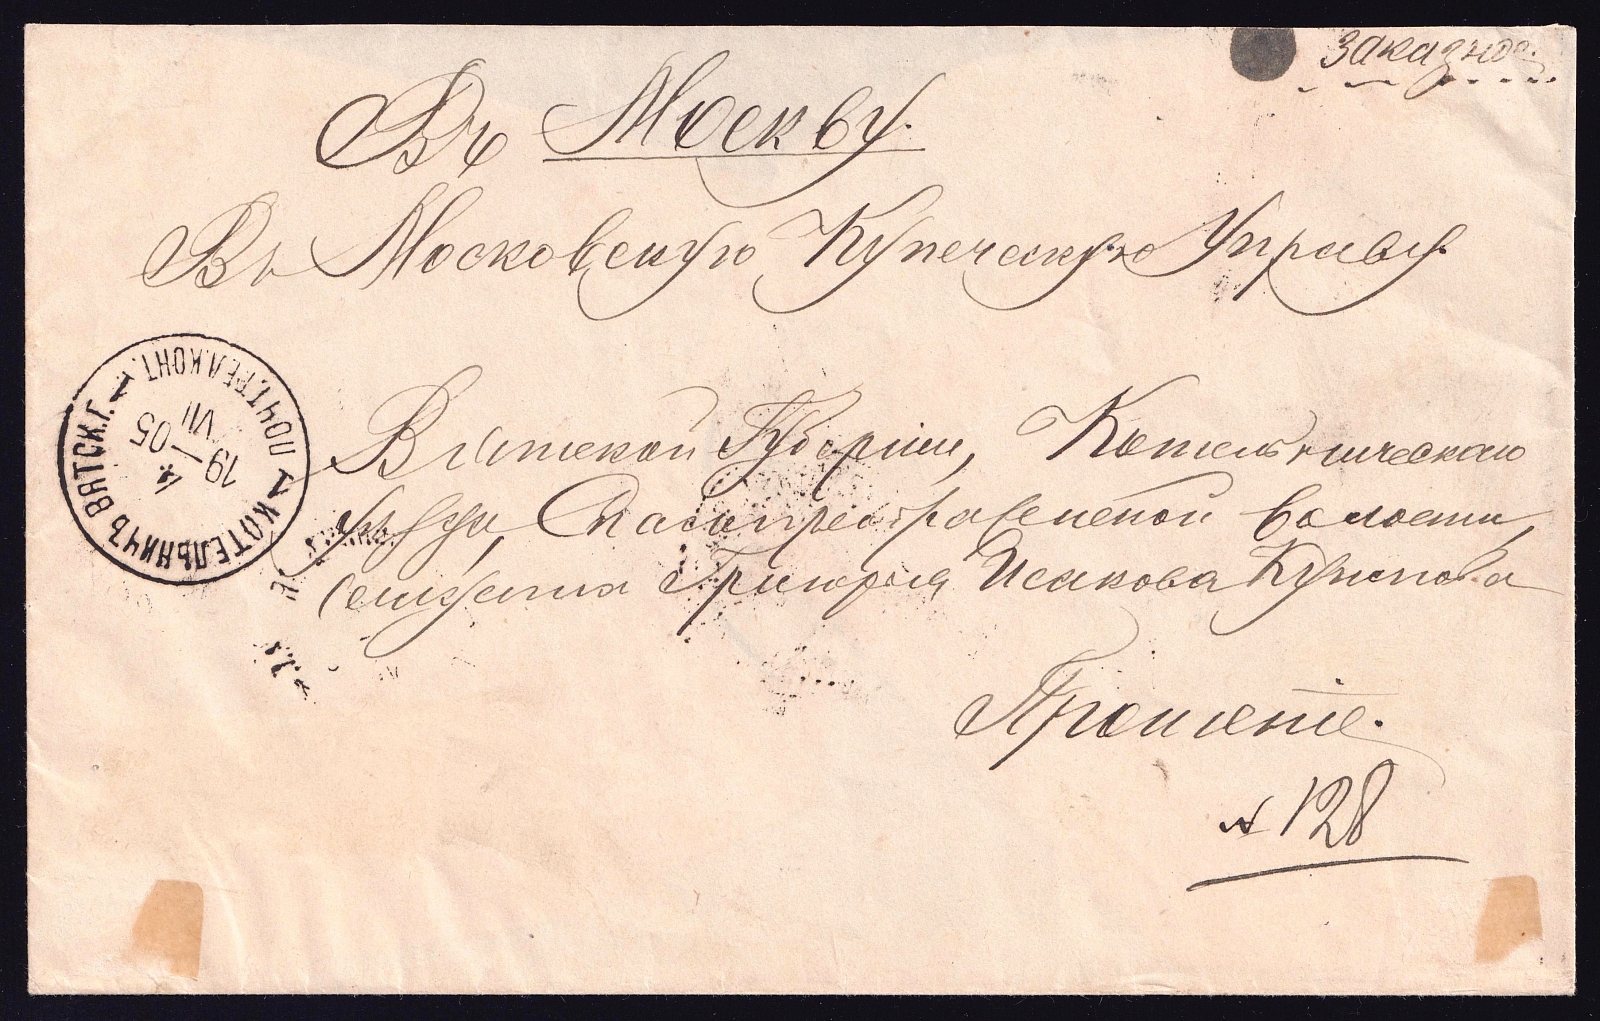 Заказное.
Въ Москву.
Въ Московскую Купеческую Управу.
Вятской Губерніи, Котельническаго
уѣзда, Спасопреображенской волости,
Григорія Исакова
Прошеніе.
№ 128
КОТЕЛЬНИЧЪ ВЯТСК.Г.
1 ПОЧТ.ТЕЛ.КОНТ. 1
4.
19—05
VII